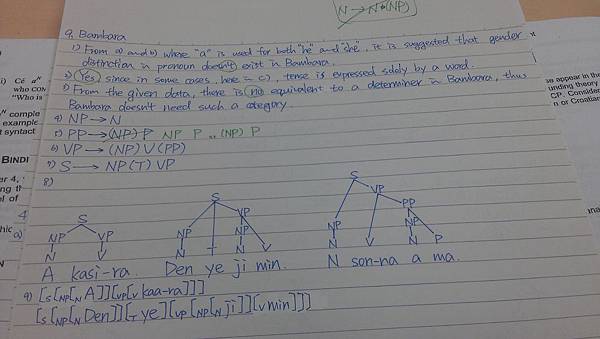 N → N (NP)
9. Bambara
1) From a) and b) where "a" is used for both "he" and "she", it is suggested that gender
distinction in pronoun doesn't exist in Bambara.
2) Yes, since in some cases, here = c), tense is expressed solely by a word.
3) From the given data, there is no equivalent to a determiner in Bambara, thus
Bambara doesn't need such a category.
4) NP → N
5) PP → (NP) P NP P .. (NP) P
6) VP → (NP) V (PP)
7) S → NP (T) VP
8)
S
NP VP
N V
A kasi-ra.
S
NP T VP
N NP V
N
Den ye ji min.
S
NP VP
N V PP
NP P
N
N son-na a ma.
9) [S[NP[N A]][VP[V kaa-ra]]]
[S[NP[N Den]][T ye][VP[NP[N ji]][V min]]]
who COM
"Who is
complem
example
syntact
BINDI
ar 4,
ng th
el of
4
appear in the
unding theory
CP. Consider
n or Croatian